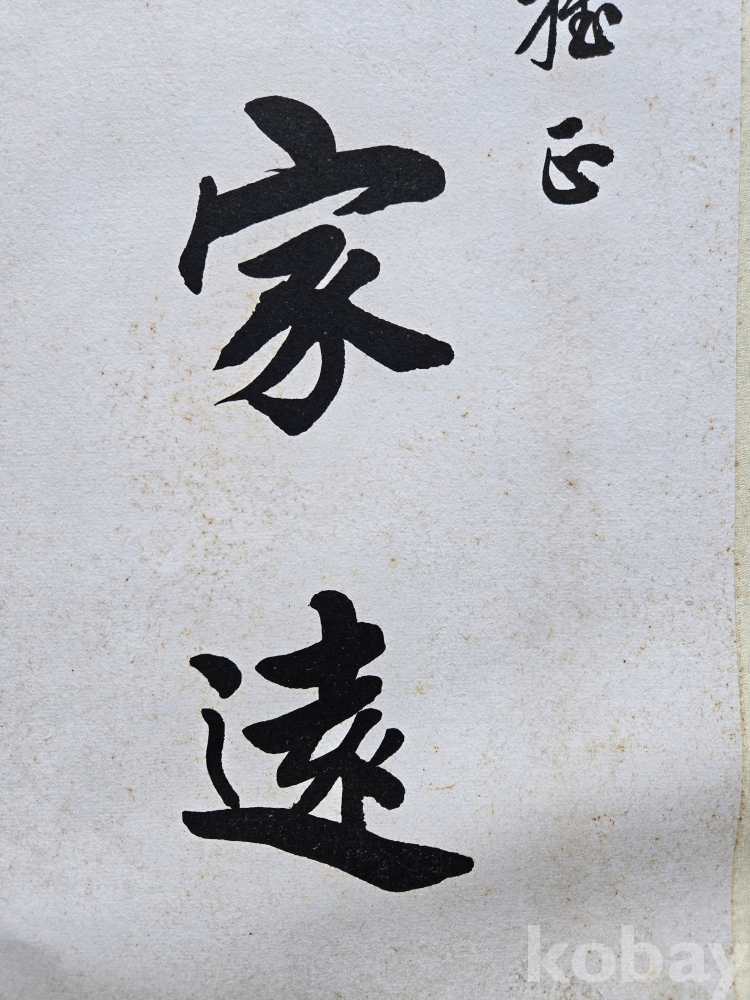 正
家遠
kobay